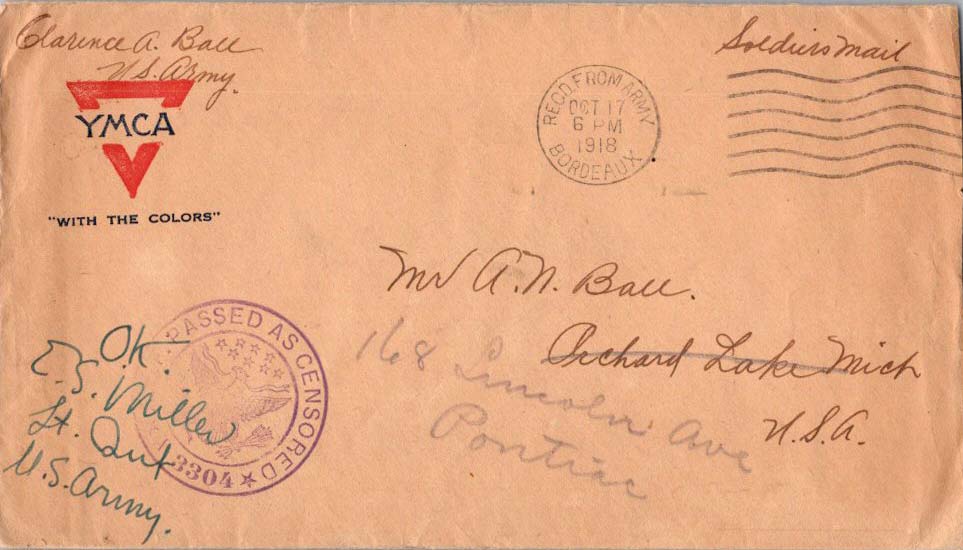 Clarence A. Ball
U.S. Army.
YMCA
"WITH THE COLORS"
Soldiers Mail
REC'D. FROM ARMY
OCT 17
6 PM
1918
BORDEAUX
Mr A. N. Ball.
Orchard Lake Mich
U.S.A.
168 Lincoln Ave
Pontiac
PASSED AS CENSORED
3304
O.K.
E. S. Miller
Lt. Inf
U.S. Army.